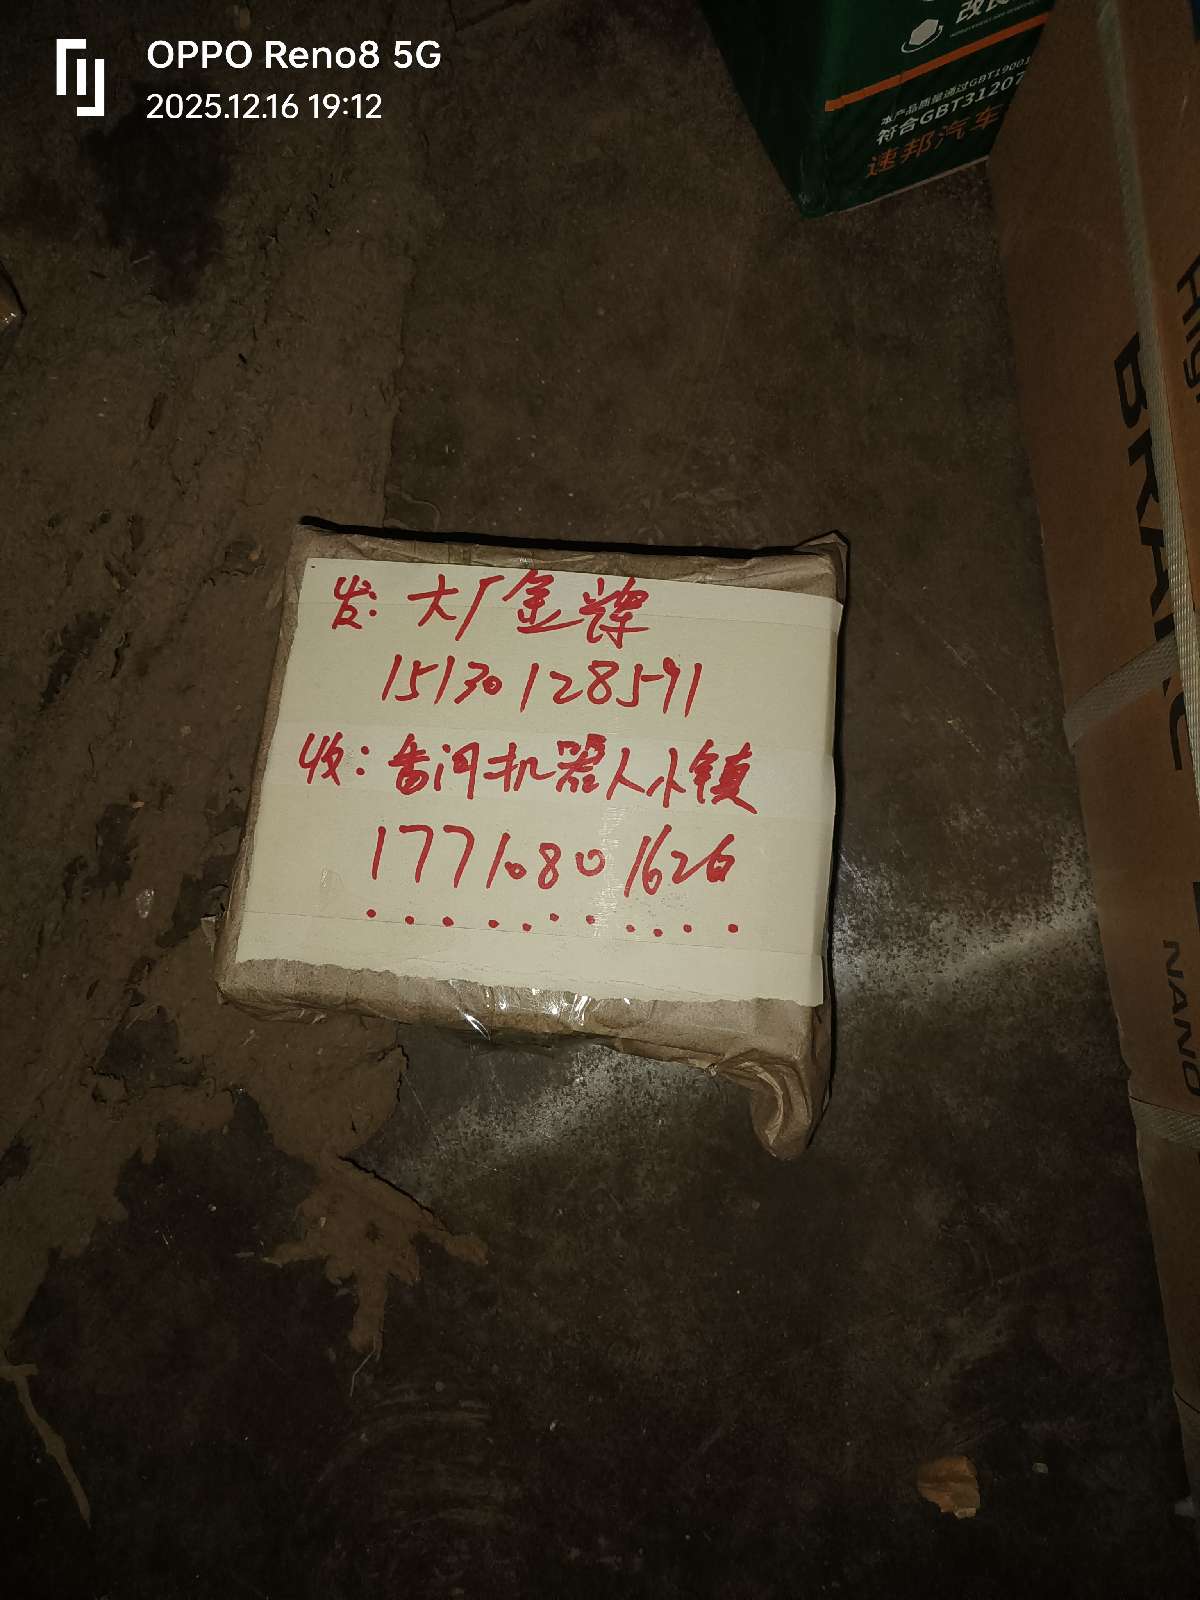 OPPO Reno8 5G
2025.12.16 19:12
本产品质量通过GBT19001
符合GBT31207
速邦汽车
发: 大厂金辉
15130128591
收: 香河机器人小镇
17710801626
BRAKE
NANO